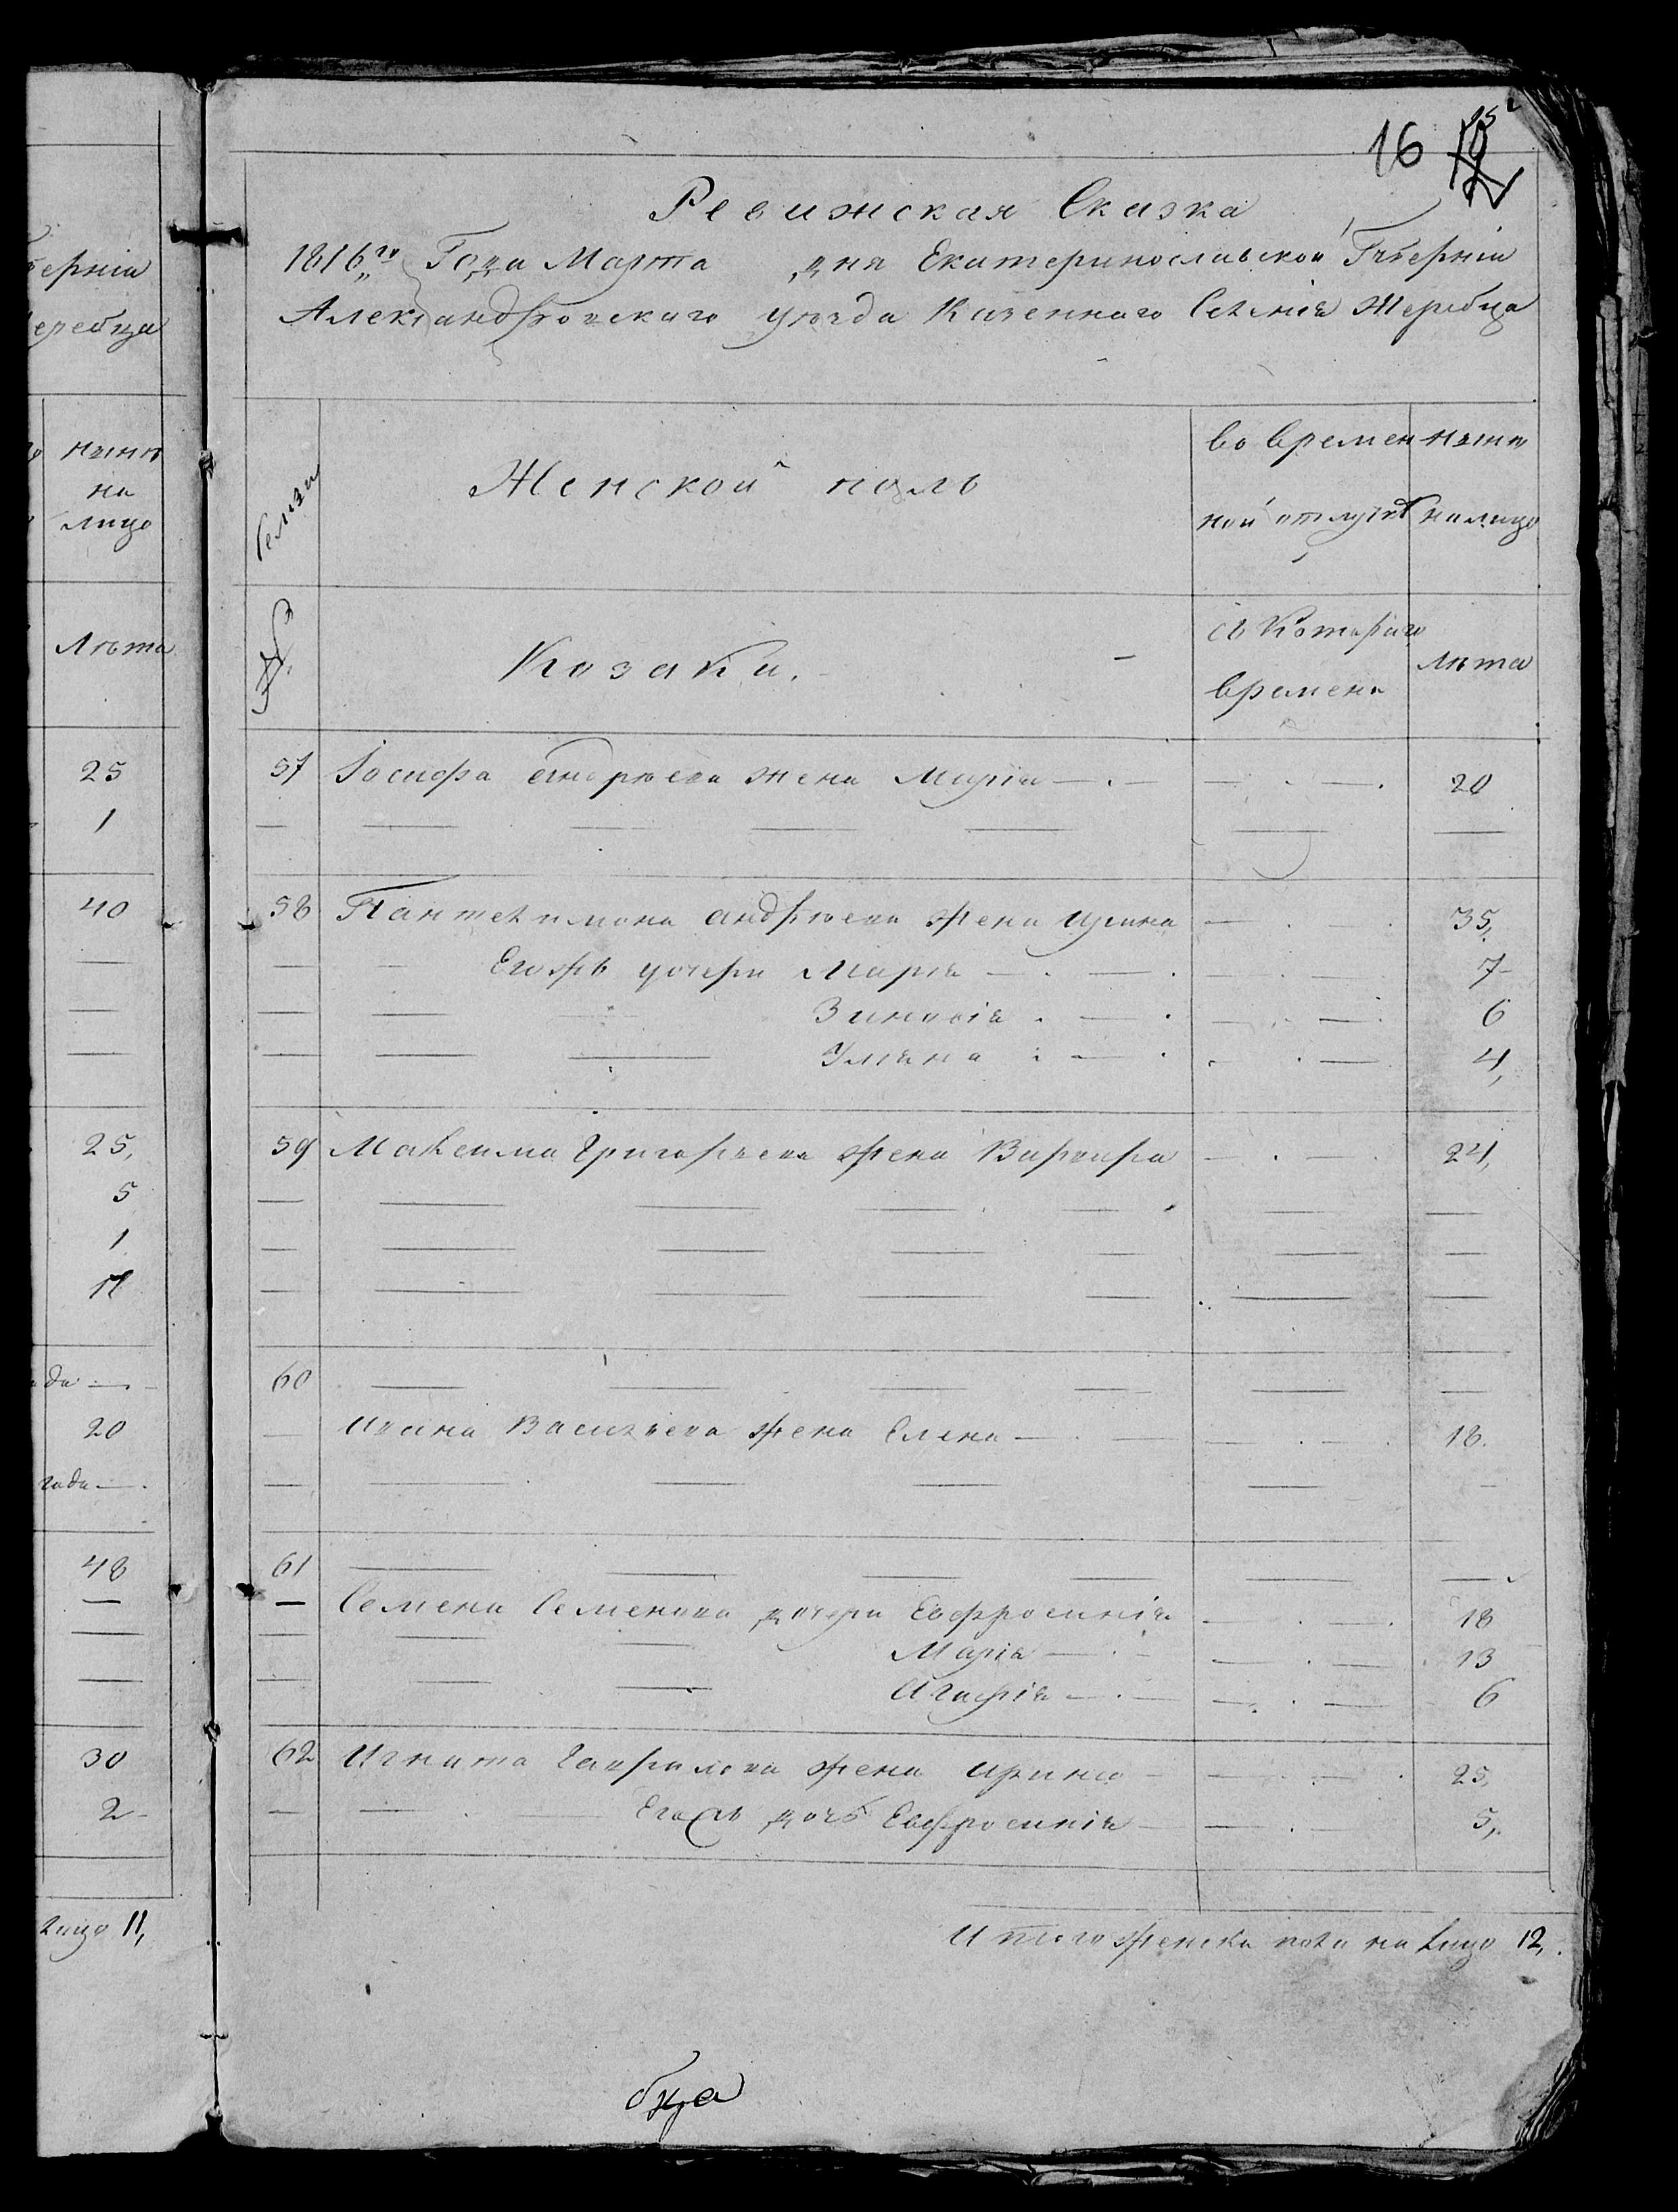 16 15
Ревижская Сказка
1816го Года Марта дня Екатеринославской Губерніи
Александровского уезда Казенного Селенія Жеребца
Семьи
Женской полъ
во времен
ной отлучке
ныне
налицо
№
Козаки.
съ Которого
времени
лета
57 Іосифа андреева жена Марія 20
58 Пантелимона андреева жена Ирина 35,
Егожъ дочери Марія 7
Зиновія 6
Уляна 4,
59 Максима Григорьева жена Варвара 24,
60
Ивана Васильева жена Елена 18.
61
Семена Семенова дочери Евфросинія 18
Марія 13
Агафія 6
62 Игната Гаврилова жена Ирина 25,
Егожъ дочь Евфросинія 5,
Итого женска пола на лицо 12,
бца
ерніи
еребца
ныне
на
лицо
лета
25
1
40
25,
5
1
20
года
48
30
2
лицо 11,